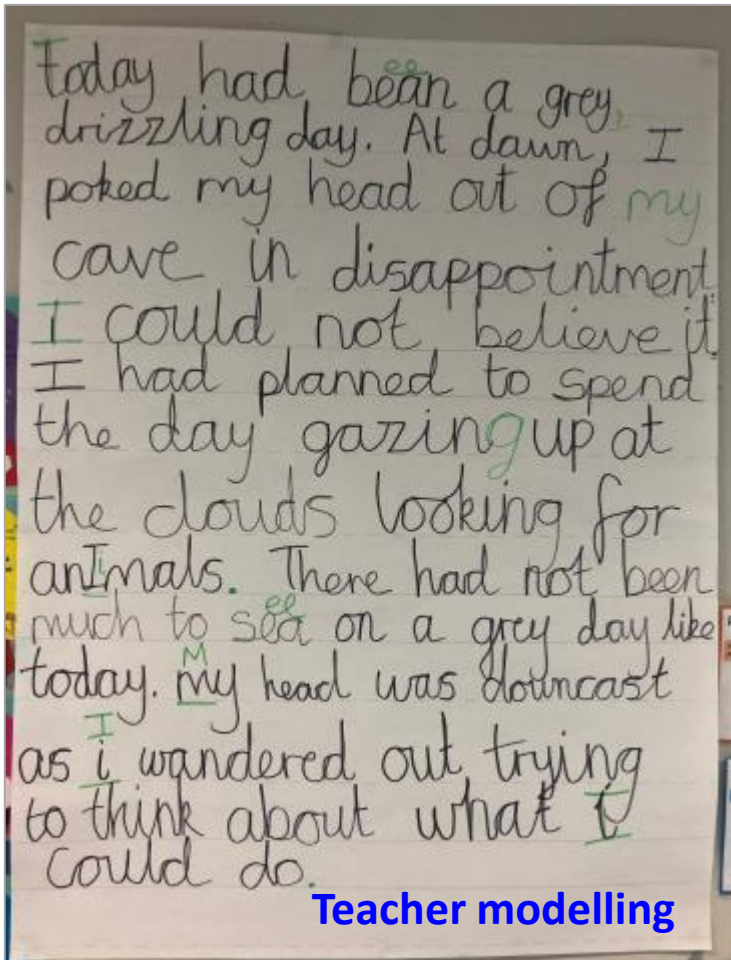 Today had beeen a grey,
drizzling day. At dawn, I
poked my head out of my
cave in disappointment.
I could not believe it.
I had planned to spend
the day gazing up at
the clouds looking for
animals. There had not been
much to see on a grey day like
today. My head was downcast
as I wandered out trying
to think about what I
could do.
Teacher modelling